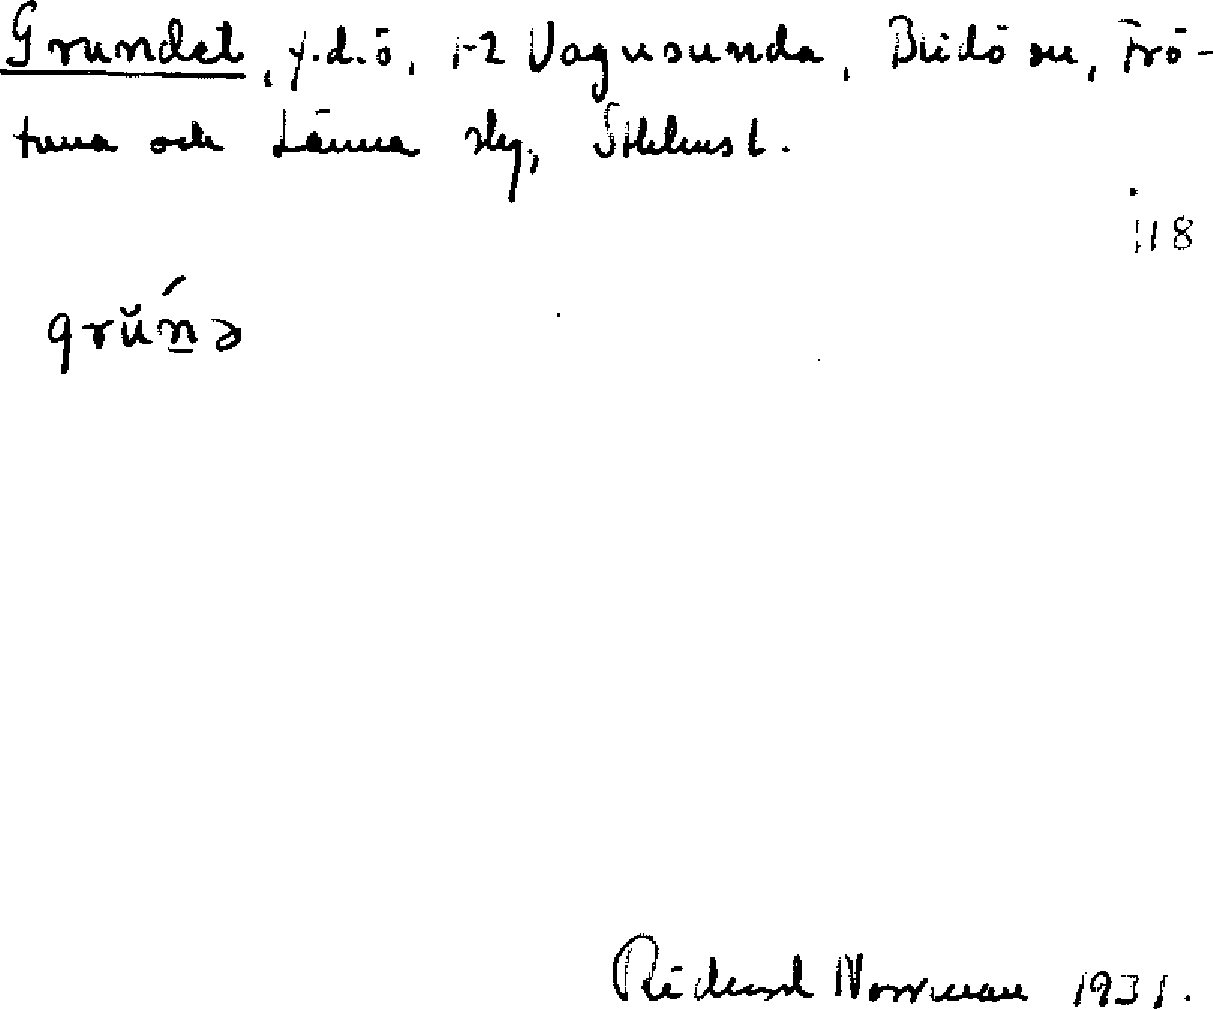 Grundet, f.d.ö, 1-2 Vagnsunda, Blidö sn, Frö-
tuna och Länna slg, Sthlms l.
118
grŭń̠ə
Rickard Norrman 1931.